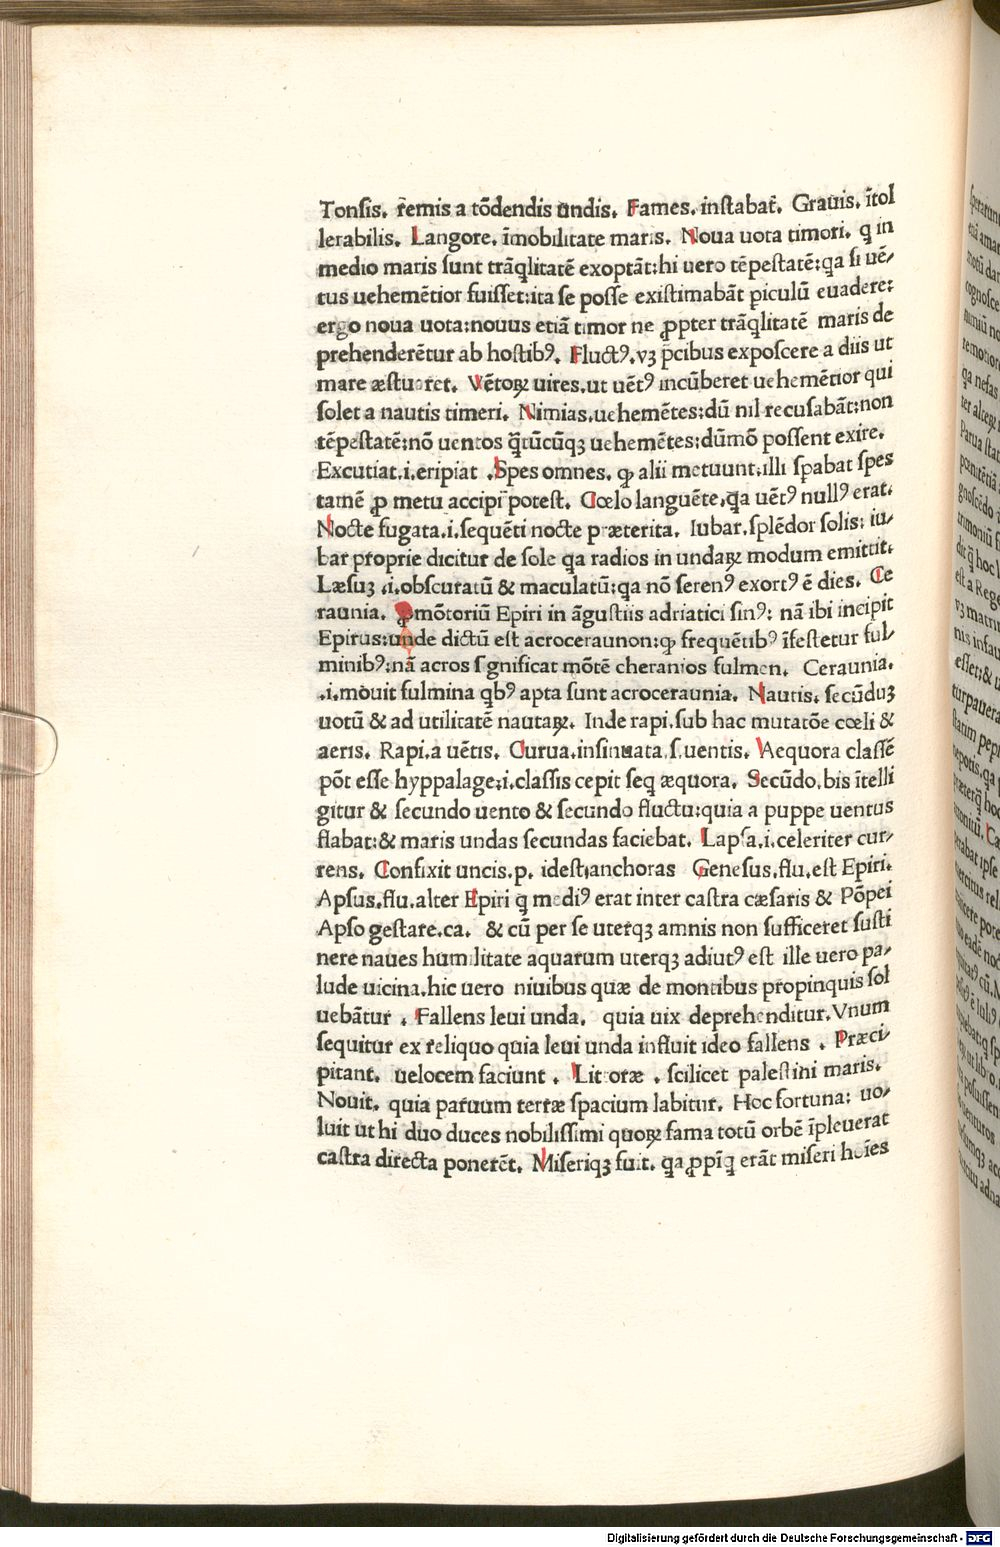 Tonſis. remis a tõdendis undis. Fames. inſtabat. Grauis. ĩtol
lerabilis. Langore. ĩmobilitate maris. Noua uota timori. q in
medio maris ſunt trãq̃litatẽ exoptãt:hi uero tẽpeſtatẽ:q̃a ſi uẽ/
tus uehemẽtior fuiſſet:ita ſe poſſe exiſtimabãt piculũ euadere:
ergo noua uota:nouus etiã timor ne ꝓpter trãq̃litatẽ maris de
prehenderẽtur ab hoſtibꝰ. Fluctꝰ.vꝫ p̃cibus expoſcere a diis ut
mare æſtuaret. Vẽtoꝝ uires.ut uẽtꝰ incũberet uehemẽtior qui
ſolet a nautis timeri. Nimias.uehemẽtes:dũ nil recuſabãt:non
tẽpeſtatẽ:nõ uentos q̃tũcũqꝫ uehemẽtes:dũmõ poſſent exire.
Excutiat.i.eripiat .Spes omnes. ꝙ alii metuunt:illi ſpabat ſpes
tamẽ ꝓ metu accipi poteſt. Cœlo languẽte.q̃a uẽtꝰ nullꝰ erat.
Nocte fugata.i.ſequẽti nocte præterita. Iubar.ſplẽdor ſolis: iu/
bar proprie dicitur de ſole q̃a radios in undaꝝ modum emittit.
Læſuꝫ .i.obſcuratũ & maculatũ:q̃a nõ ſerenꝰ exortꝰ ẽ dies. Ce
raunia. ꝓmõtoriũ Epiri in ãguſtiis adriatici ſinꝰ: nã ibi incipit
Epirus:unde dictũ eſt acroceraunon:ꝙ frequẽtibꝰ ĩfeſtetur ful/
minibꝰ:nã acros ſignificat mõtẽ cheranios fulmen. Ceraunia.
.i.mouit fulmina qbꝰ apta ſunt acroceraunia. Nautis. ſecũduꝫ
uotũ & ad utilitatẽ nautaꝝ. Inde rapi.ſub hac mutatõe cœli &
aeris. Rapi.a uẽtis. Curua.inſinuata.ſ.uentis. Aequora claſſẽ
põt eſſe hyppalage:i.claſſis cepit ſeq æquora. Secũdo.bis ĩtelli
gitur & ſecundo uento & ſecundo fluctu:quia a puppe uentus
flabat:& maris undas ſecundas faciebat. Lapſa.i.celeriter cur/
rens. Confixit uncis.p. ideſt,anchoras Geneſus.flu.eſt Epiri.
Apſus.flu.alter Epiri q̃ mediꝰ erat inter caſtra cæſaris & Põpei
Apſo geſtare.ca. & cũ per ſe uterqꝫ amnis non ſufficeret ſuſti
nere naues humilitate aquarum uterqꝫ adiutꝰ eſt ille uero pa/
lude uicina.hic uero niuibus quæ de montibus propinquis ſol
uebãtur . Fallens leui unda. quia uix deprehenditur.Vnum
ſequitur ex reliquo quia leui unda influit ideo fallens . Præci
pitant. uelocem faciunt . Litoræ . ſcilicet paleſtini maris.
Nouit. quia paruum terræ ſpacium labitur. Hoc fortuna: uo/
luit ut hi duo duces nobiliſſimi quoꝝ fama totũ orbẽ ĩpleuerat
caſtra directa ponerẽt. Miſeriqꝫ fuit. q̃a ꝓpĩq̃ erãt miſeri hoĩes
Digitalisierung gefördert durch die Deutsche Forschungsgemeinschaft - DFG